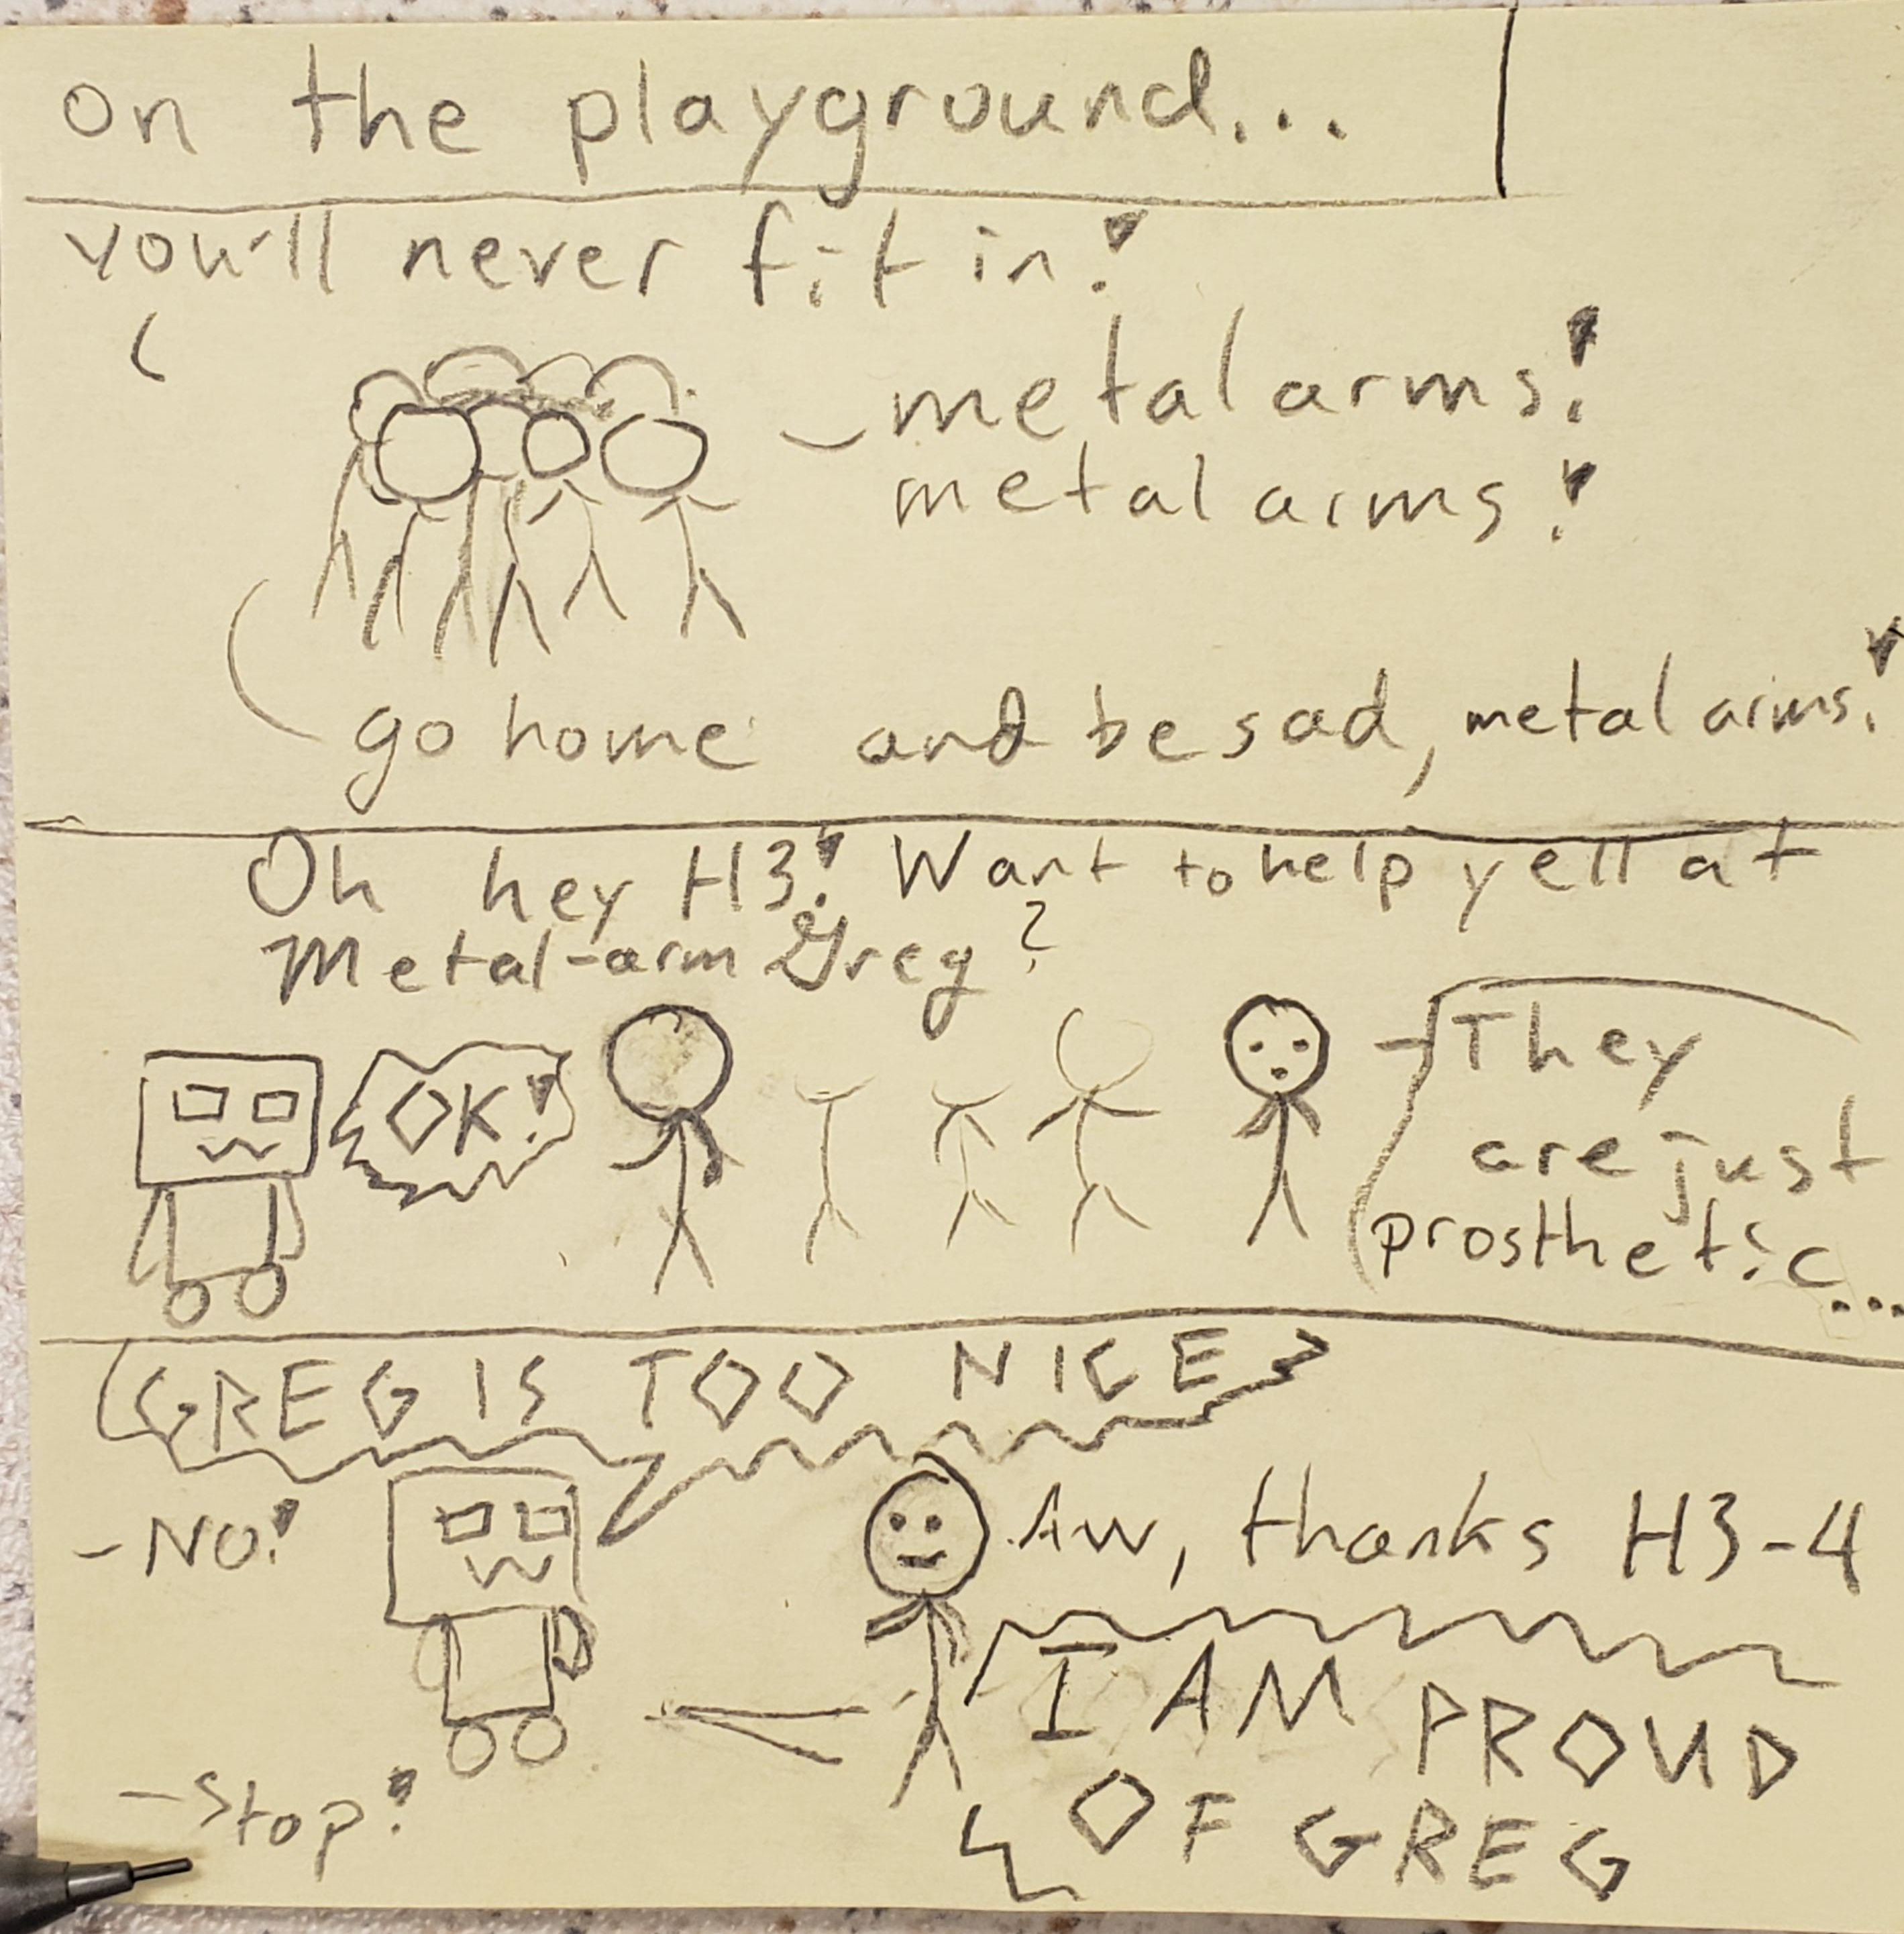 on the playground...
you'll never fit in!
metal arms!
metal arms!
go home and be sad, metal arms!
Oh hey H3! Want to help yell at
Metal-arm Greg?
OK!
They
are just
prosthetic...
GREG IS TOO NICE
-NO!
Aw, thanks H3-4
I AM PROUD
OF GREG
-stop!